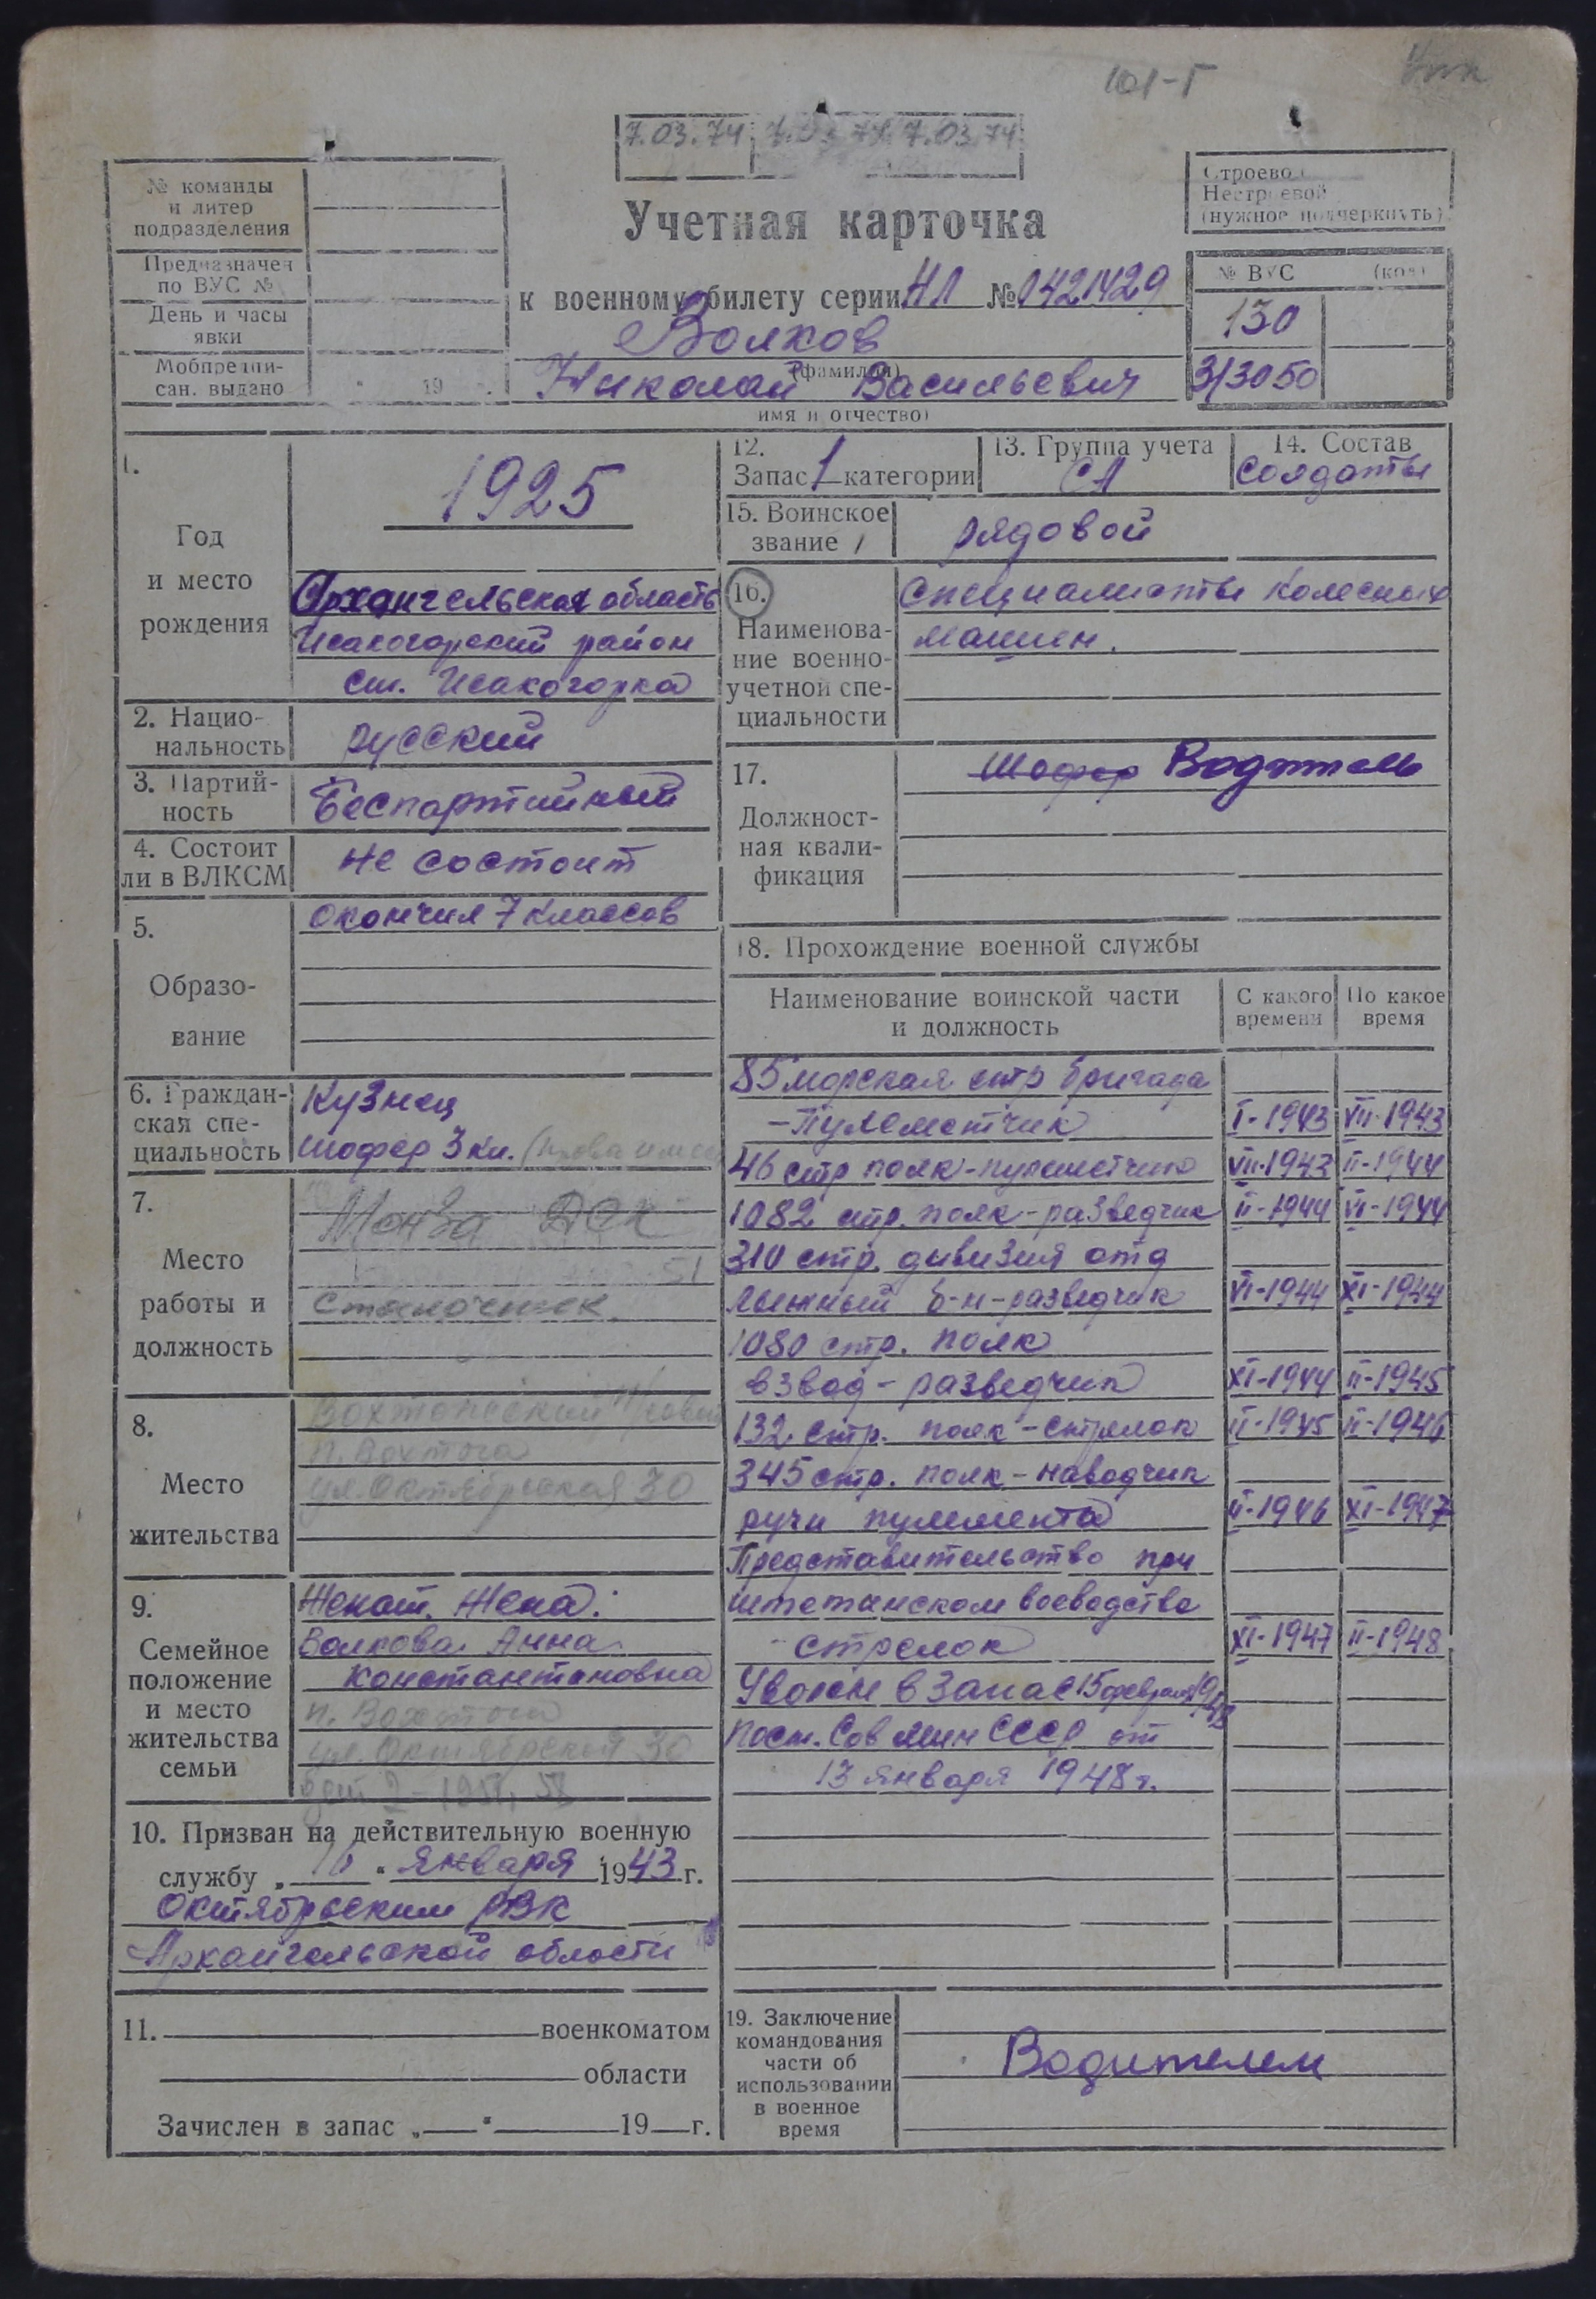 101-Г
7.03.74 7.03.74 7.03.74
№ команды
и литер
подразделения
Предназначен
по ВУС №
День и часы
явки
Мобпредпи-
сан. выдано 19 .
Строевой
Нестроевой
(нужное подчеркнуть)
Учетная карточка
к военному билету серии НЛ № 0421429
Волков
(фамилия)
Николай Васильевич
имя и отчество)
№ ВУС (код)
130
3/3050
1.
Год
и место
рождения
1925
Архангельская область
Исакогорский район
ст. Исакогорка
2. Нацио-
нальность
русский
3. Партий-
ность
Беспартийный
4. Состоит
ли в ВЛКСМ
не состоит
5.
Образо-
вание
окончил 7 классов
6. Граждан-
ская спе-
циальность
Кузнец
шофер 3 кл. (права имеет
7.
Место
работы и
должность
Монза ДОК
51
станочник
8.
Место
жительства
п. Вохтога
ул. Октябрьская 30
9.
Семейное
положение
и место
жительства
семьи
Женат. Жена:
Волкова Анна
Константиновна
п. Вохтога
ул. Октябрьская 30
10. Призван на действительную военную
службу „ 16 " января 1943 г.
Октябрьским РВК
Архангельской области
11. военкоматом
области
Зачислен в запас „ " 19 г.
12.
Запас 1 категории
13. Группа учета
СА
14. Состав
солдаты
15. Воинское
звание
рядовой
16.
Наименова-
ние военно-
учетной спе-
циальности
специалисты колесных
машин.
17.
Должност-
ная квали-
фикация
Шофер Водитель
18. Прохождение военной службы
Наименование воинской части
и должность
С какого
времени
По какое
время
85 морская стр бригада
-пулеметчик I-1943 VII-1943
46 стр полк-пулеметчик VII-1943 II-1944
1082 стр. полк-разведчик II-1944 VI-1944
310 стр. дивизия отд
лыжный б-н-разведчик VI-1944 XI-1944
1080 стр. полк
взвод-разведчик XI-1944 II-1945
132 стр. полк-стрелок II-1945 II-1946
345 стр. полк-наводчик
ручн пулемета II-1946 XI-1947
Представительство при
штетинском воеводстве
-стрелок XI-1947 II-1948
Уволен в запас 15 февраля 1948
Пост. Сов мин СССР от
13 января 1948 г.
19. Заключение
командования
части об
использовании
в военное
время
Водителем